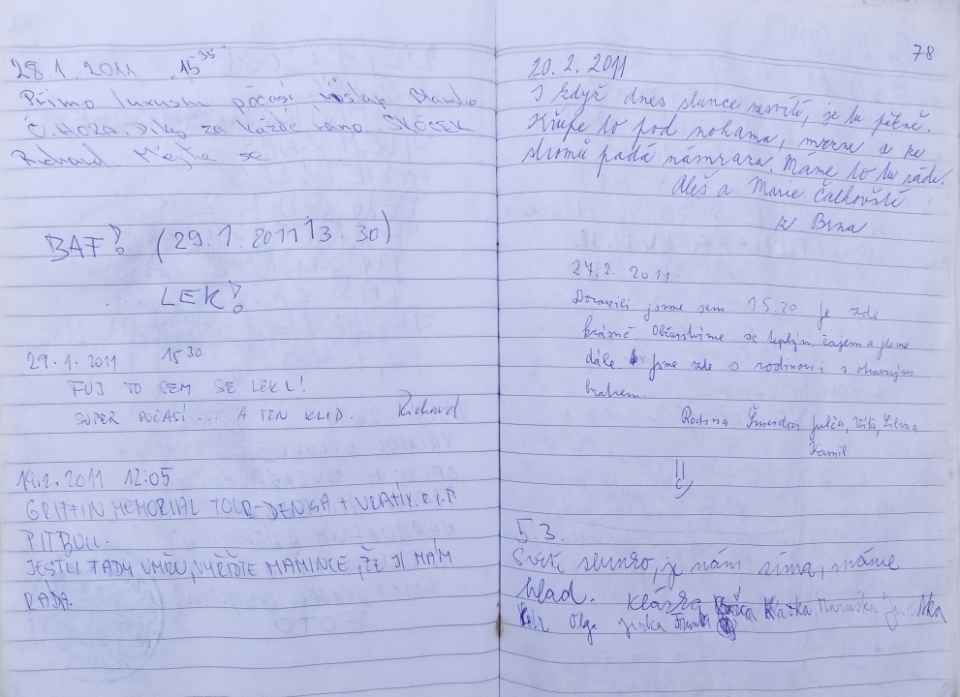 28.1.2011 15 35
Přímo luxusní počasí
Č. HORA. Díky za každé ráno
Richard Mějte se
BAF! (29.1.2011 13.30)
LEK!
29.1.2011 15 30
FUJ TO SEM SE LEKL!
SUPER POČASÍ... A TEN KLID. Richard
19.2.2011 12:05
GRIFFIN MEMORIAL TOUR - DENISA + VLATIK. R.I.P.
PITBULL.
JESTLI TADY UMŘU, VYŘIĎTE MAMINCE, ŽE JI MÁM
RÁDA.
78
20.2.2011
I když dnes slunce nesvítí, je tu pěkně.
Křupe to pod nohama, mrzne a ze
stromů padá námraza. Máme to tu rádi.
Aleš a Marie
z Brna
27.2.2011
Dorazili jsme sem 15.20. Je zde
krásně Občerstvíme se teplým čajem a jdeme
dále. Jsme zde s rodinou i s
bratrem.
Rodina
Kamil
5.3.
Svítí slunko, je nám zima, máme
hlad. Klárka Kačka Maruška
Olga Jirka